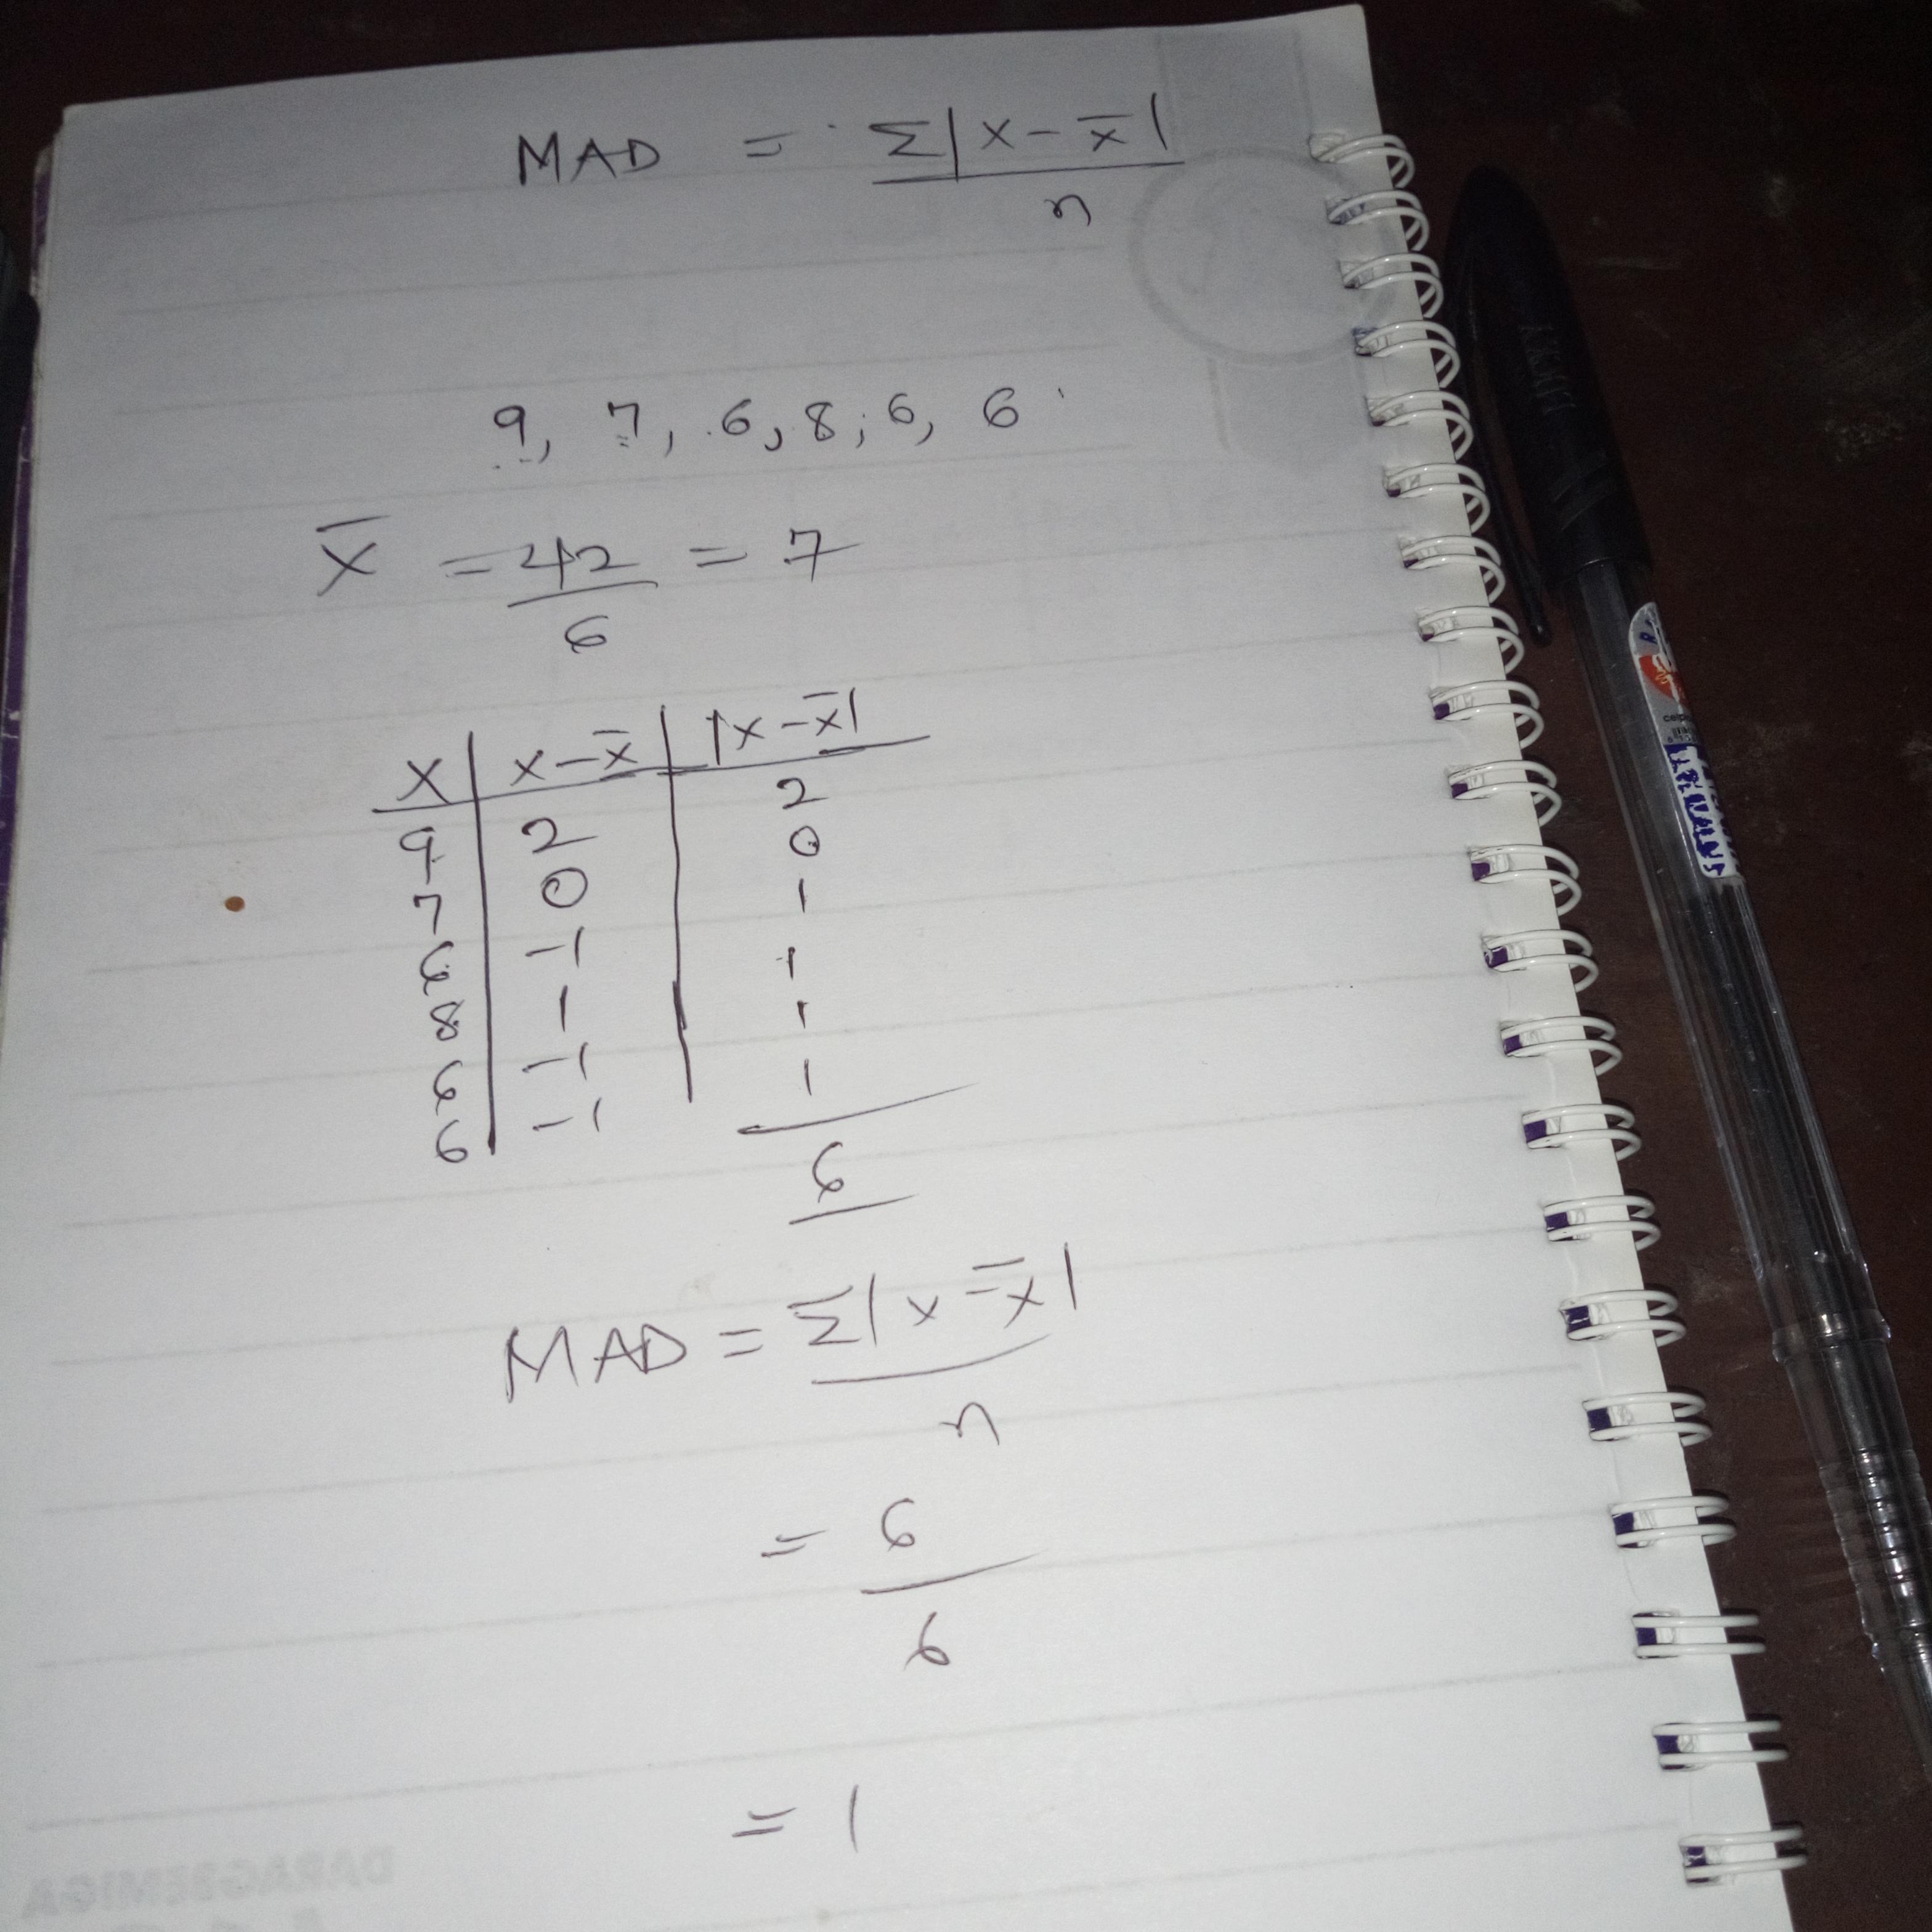 MAD = Σ|x - x̄|
n
9, 7, 6, 8, 6, 6
x̄ = 42 = 7
6
x | x - x̄ | |x - x̄|
9 2 2
7 0 0
6 -1 1
8 1 1
6 -1 1
6 -1 1
6
MAD = Σ|x - x̄|
n
= 6
6
= 1